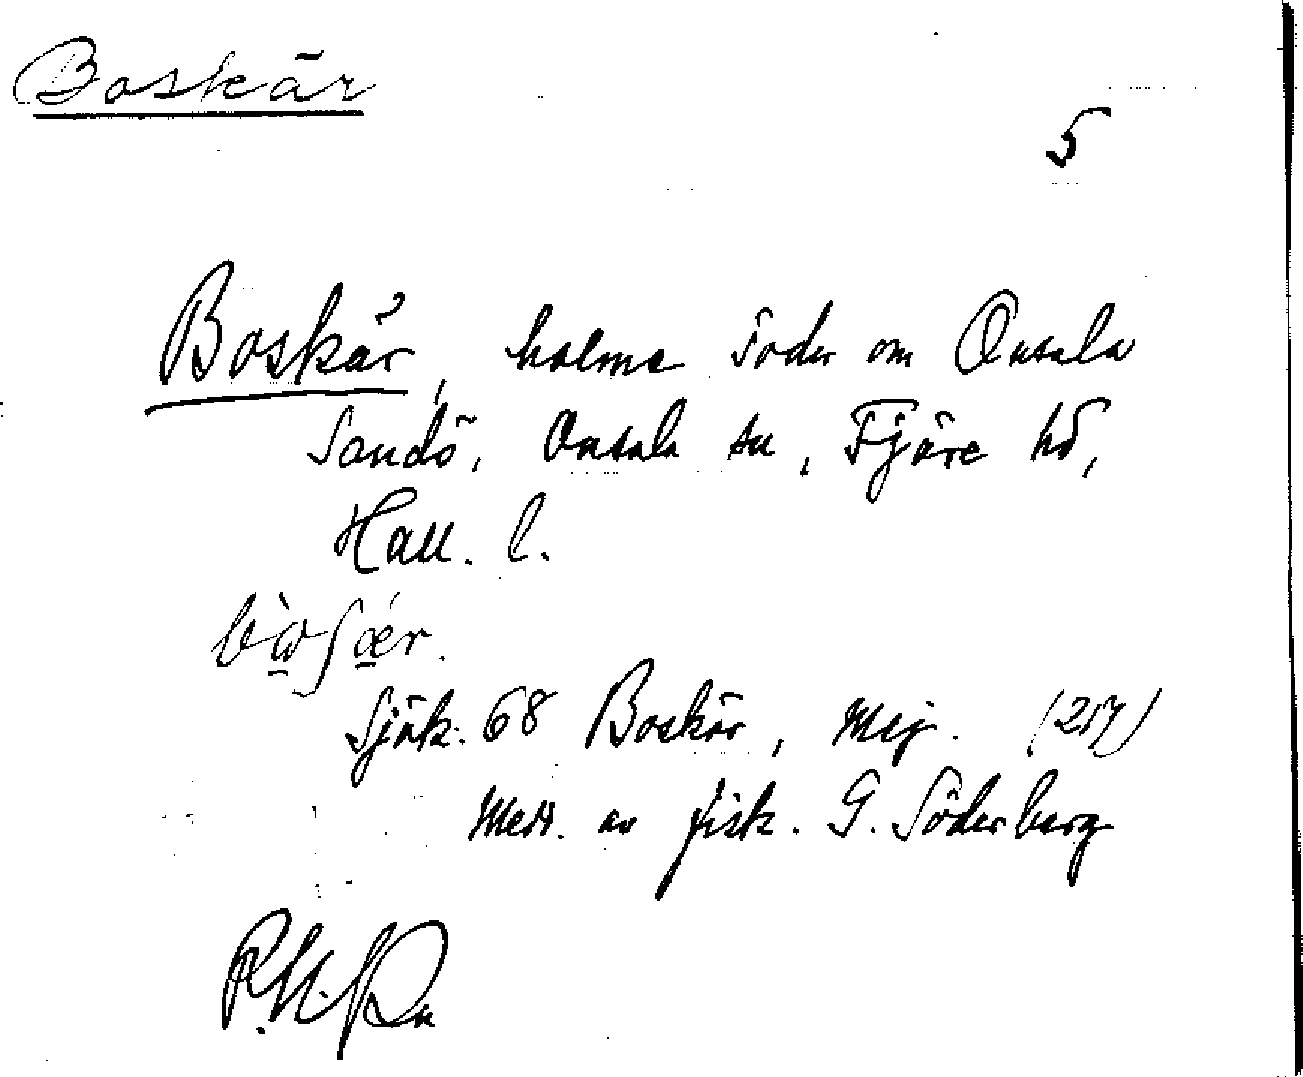 Boskär
5
Boskär, holme söder om Onsala
Sandö, Onsala sn, Fjäre hd,
Hall. l.
Sjök. 68 Boskär, (217)
Medd. av fisk. G. Söderberg